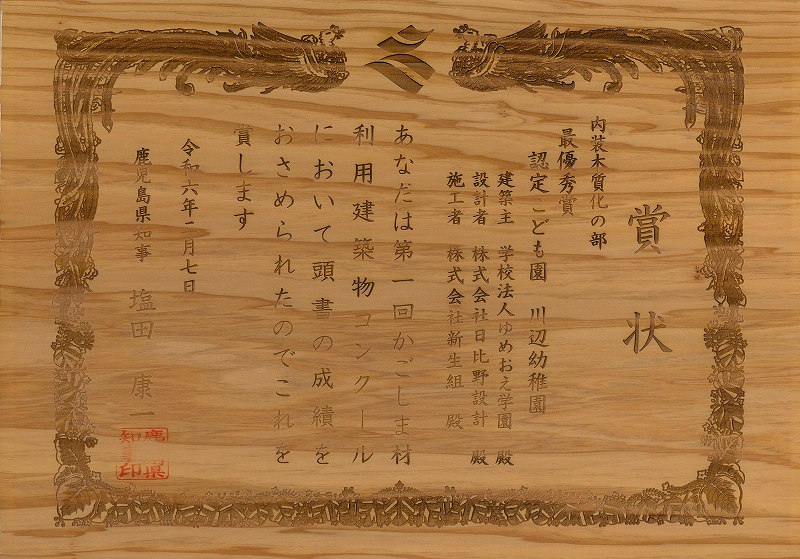 賞状
内装木質化の部
最優秀賞
認定こども園 川辺幼稚園
建築主 学校法人ゆめおえ学園 殿
設計者 株式会社日比野設計 殿
施工者 株式会社新生組 殿
あなたは第一回かごしま材
利用建築物コンクール
において頭書の成績を
おさめられたのでこれを
賞します
令和六年二月七日
鹿児島県知事 塩田 康一
鹿県知事印